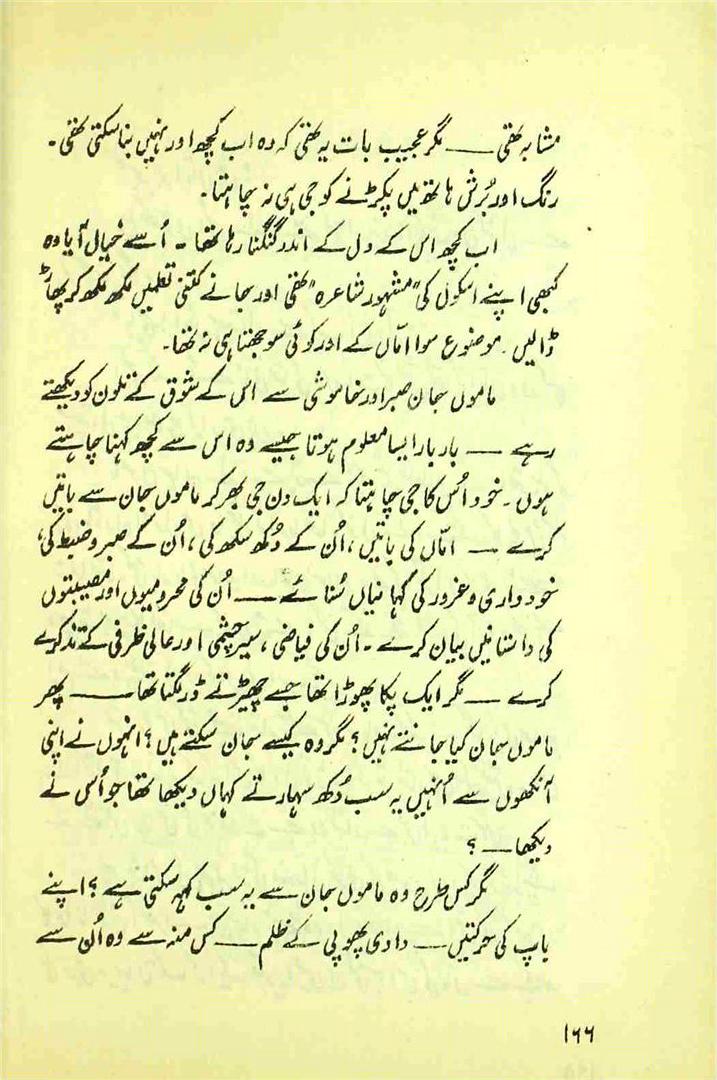 مشابہ تھی — مگر عجیب بات یہ تھی کہ وہ اب کچھ اور نہیں بنا سکتی تھی۔
رنگ اور بُرش ہاتھ میں پکڑنے کو جی ہی نہ چاہتا۔
اب کچھ اس کے دل کے اندر گنگنا رہا تھا۔ اُسے خیال آیا وہ
کبھی اپنے اسکول کی "مشہور شاعرہ" تھی اور جانے کتنی نظمیں لکھ لکھ کر پھاڑ
ڈالیں۔ موضوع سوا امّاں کے اور کوئی سوجھتا ہی نہ تھا۔
ماموں جان صبر اور خاموشی سے اس کے شوق کے تلون کو دیکھتے
رہے — بار بار ایسا معلوم ہوتا جیسے وہ اس سے کچھ کہنا چاہتے
ہوں۔ خود اُس کا جی چاہتا کہ ایک دن جی بھر کر ماموں جان سے باتیں
کرے — امّاں کی باتیں، اُن کے دُکھ سکھ کی، اُن کے صبر و ضبط کی،
خود داری و غرور کی کہانیاں سُنائے — اُن کی محرومیوں اور مصیبتوں
کی داستانیں بیان کرے۔ اُن کی فیاضی، سیر چشمی اور عالی ظرفی کے تذکرے
کرے — مگر ایک پکا پھوڑا تھا جسے چھیڑتے ڈر لگتا تھا — پھر
ماموں جان کیا جانتے نہیں؟ مگر وہ کیسے جان سکتے ہیں؟ انہوں نے اپنی
آنکھوں سے اُنہیں یہ سب دُکھ سہارتے کہاں دیکھا تھا جو اُس نے
دیکھا — ؟
مگر کس طرح وہ ماموں جان سے یہ سب کہہ سکتی ہے؟ اپنے
باپ کی حرکتیں — دادی پھوپی کے ظلم — کس منہ سے وہ اُن سے
۱۶۶